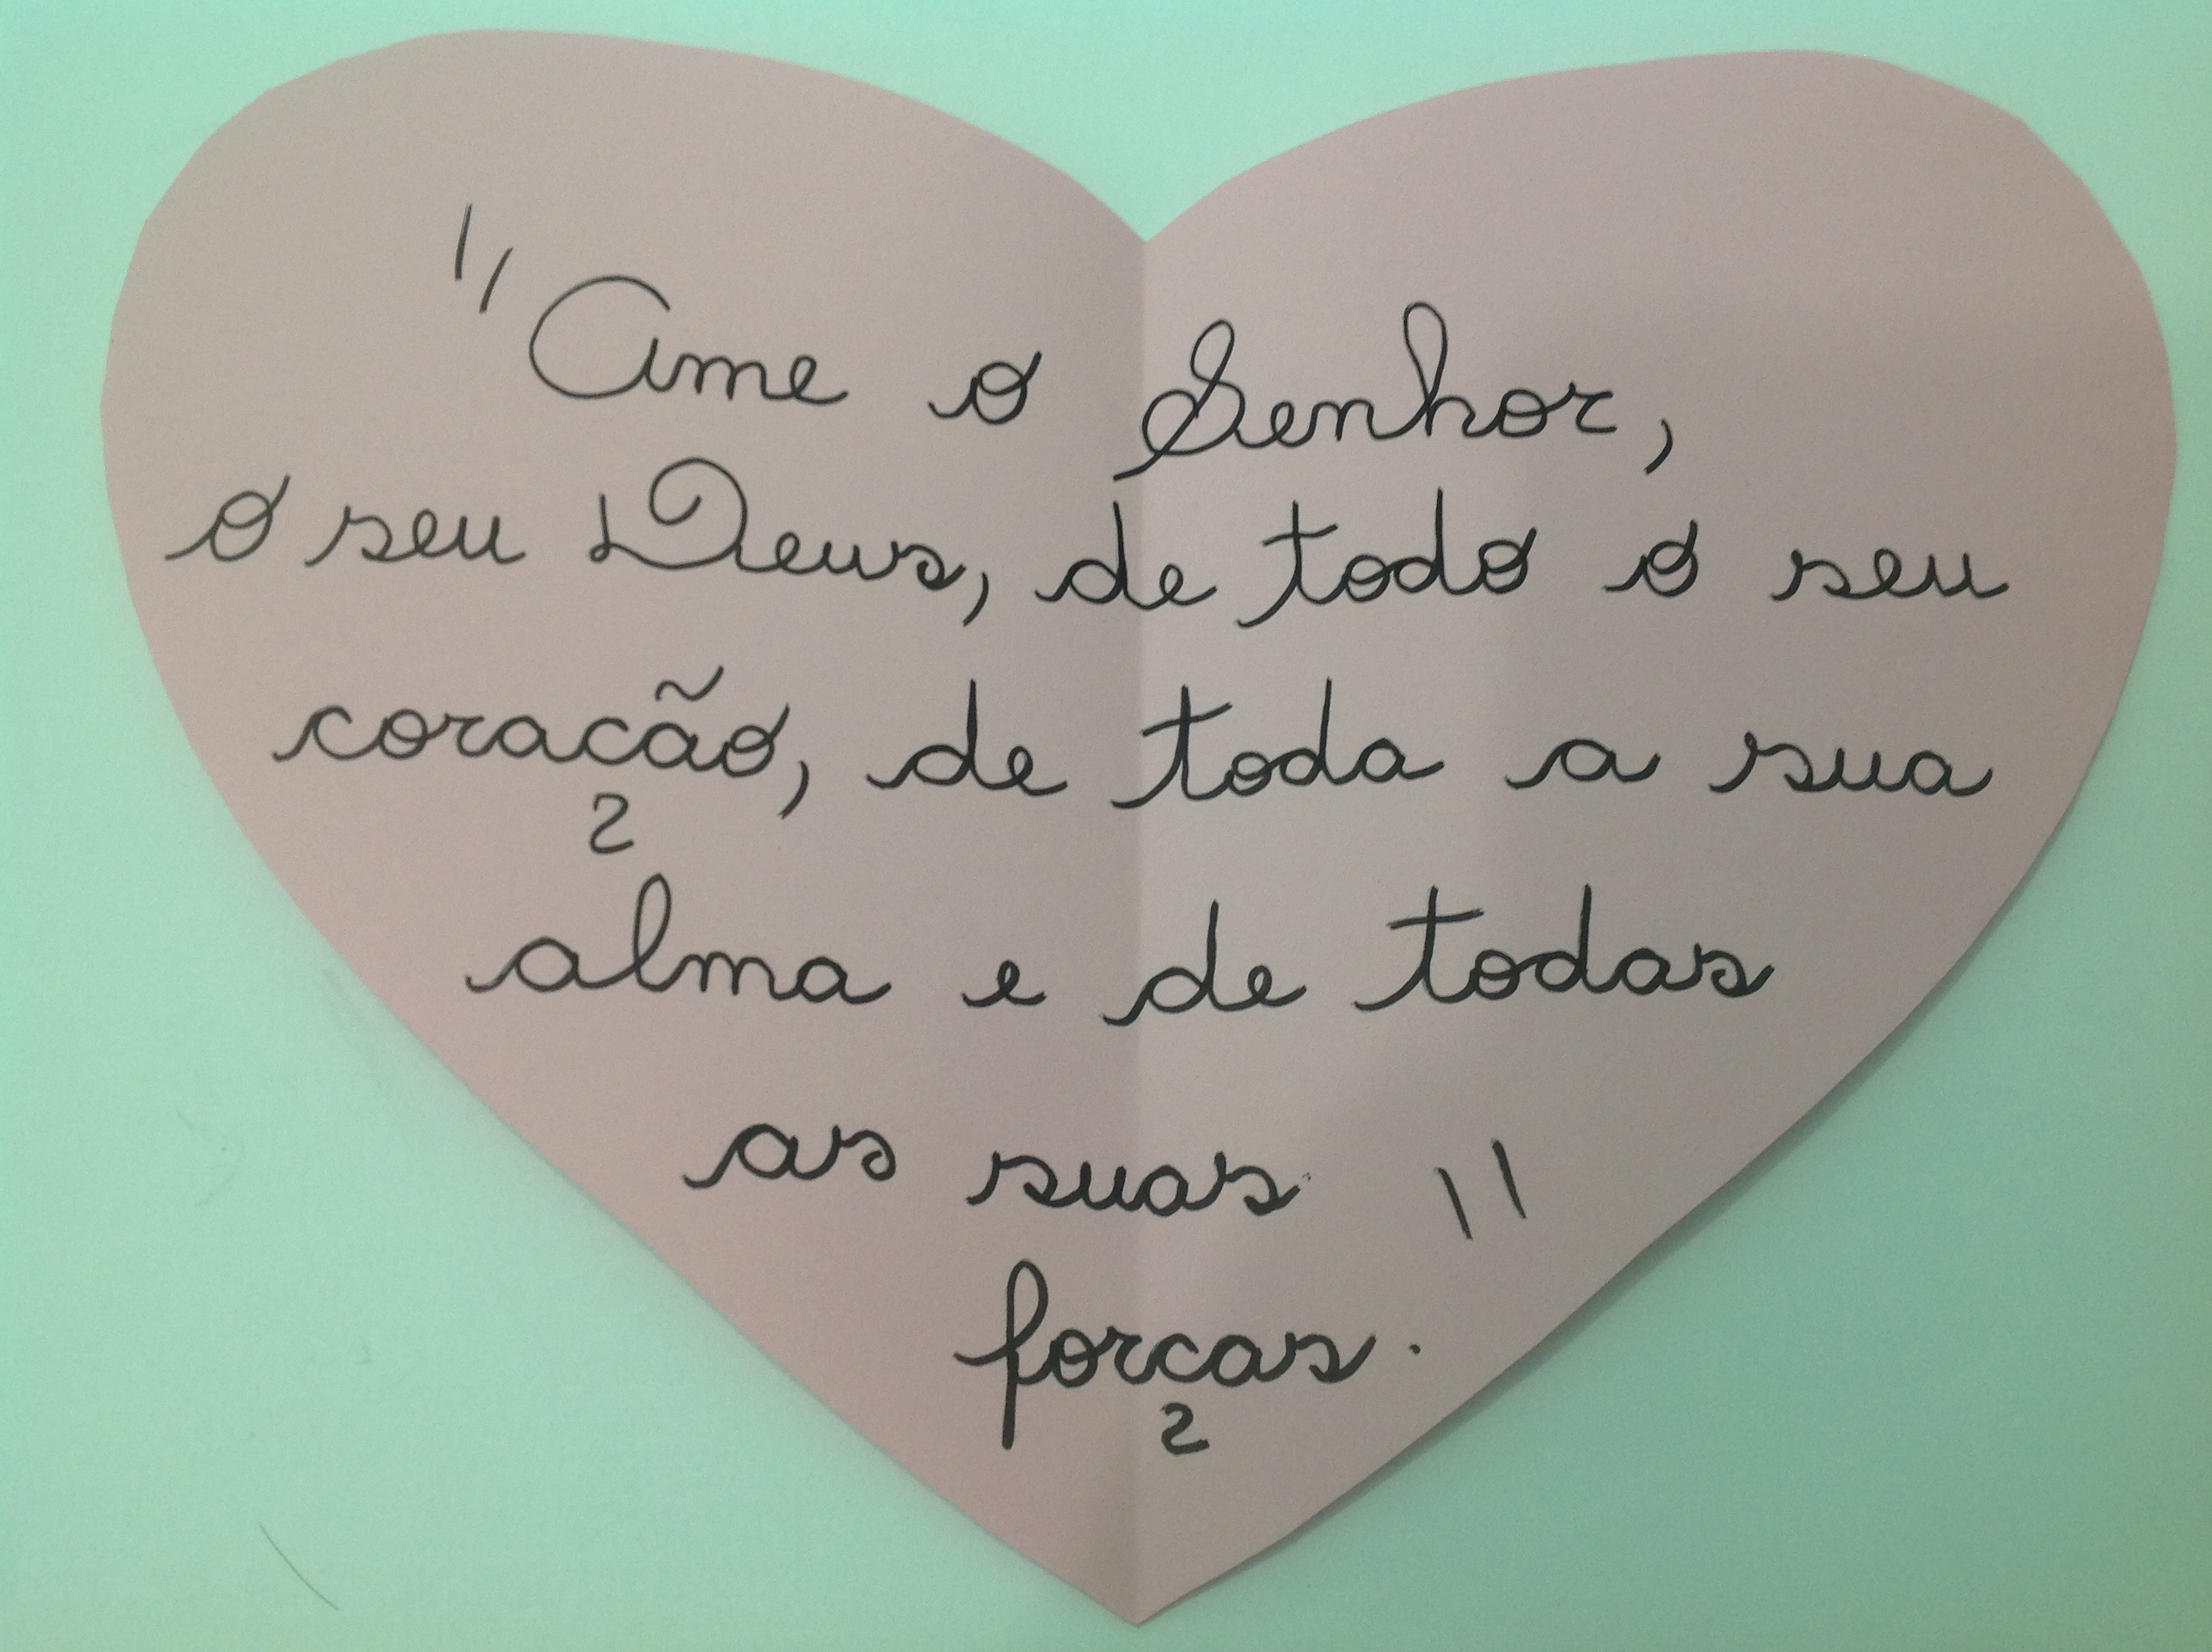 "Ame o Senhor,
o seu Deus, de todo o seu
coração, de toda a sua
alma e de todas
as suas "
forças.